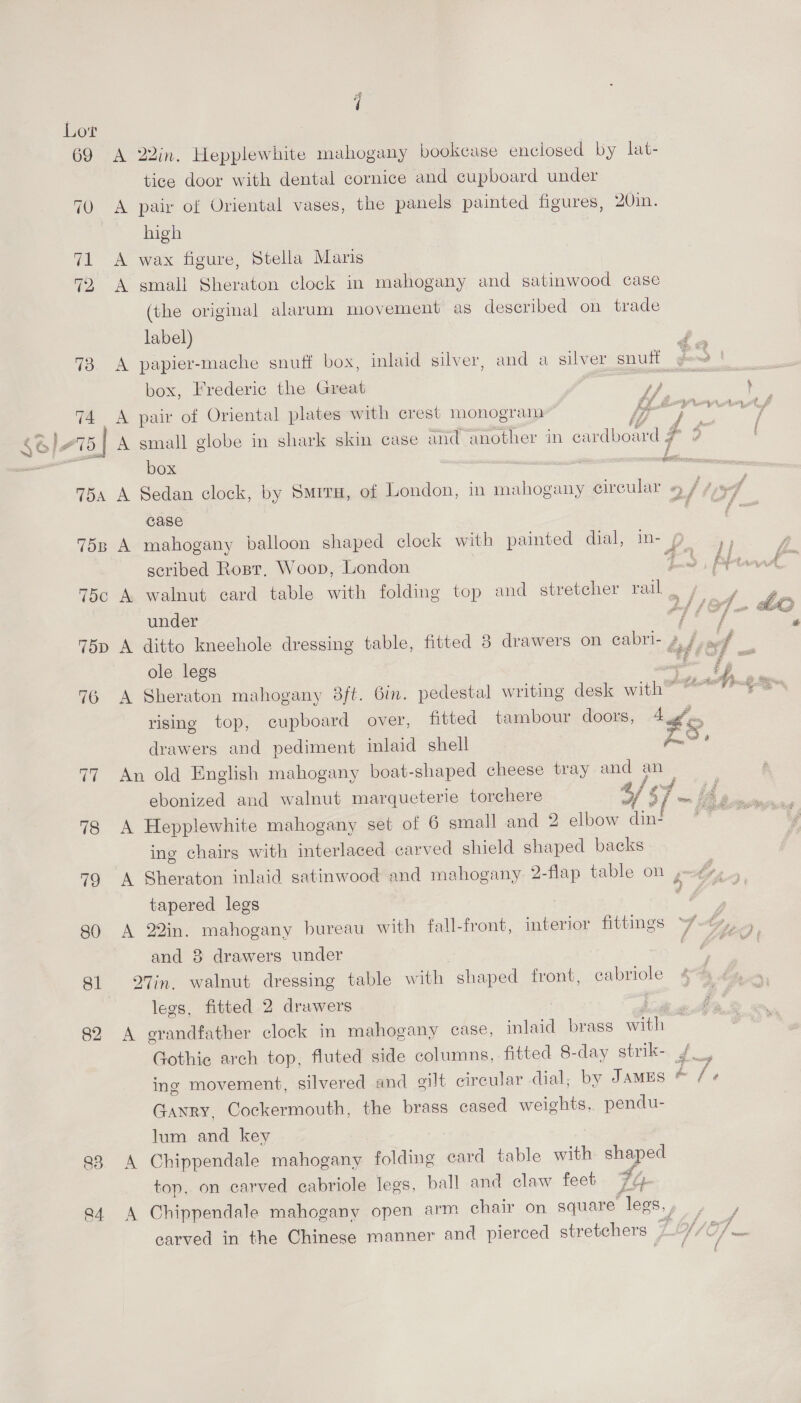 Lot
69 A 22in. Hepplewhite mahogany bookcase enclosed by lat-
tice door with dental cornice and cupboard under
70 A pair of Oriental vases, the panels painted figures, 20in.
high
71 A wax figure, Stella Maris
72 A small Sheraton clock in mahogany and satinwood case
(the original alarum movement as described on trade
label)
73 A papier-mache snuff box, inlaid silver, and a silver snuff
box, Frederic the Great
74 A pair of Oriental plates with crest monogram
75 A small globe in shark skin case and another in cardboard
box
75A A Sedan clock, by Smith, of London, in mahogany circular
case
75B A mahogany balloon shaped clock with painted dial, in-
scribed Robt. Wood, London
75C A walnut card table with folding top and stretcher rail
under
75D A ditto kneehole dressing table, fitted 3 drawers on cabri-
ole legs
76 A Sheraton mahogany 3ft. 6in. pedestal writing desk with
rising top, cupboard over, fitted tambour doors, 4
drawers and pediment inlaid shell
77 An old English mahogany boat-shaped cheese tray and an
ebonized and walnut marqueterie torchere
78 A Hepplewhite mahogany set of 6 small and 2 elbow din-
ing chairs with interlaced carved shield shaped backs
79 A Sheraton inlaid satinwood and mahogany 2-flap table on
tapered legs
80 A 22in. mahogany bureau with fall-front, interior fittings
and 3 drawers under
81 27in. walnut dressing table with shaped front, cabriole
legs, fitted 2 drawers
82 A grandfather clock in mahogany case, inlaid brass with
Gothic arch top, fluted side columns, fitted 8-day strik-
ing movement, silvered and gilt circular dial; by James
Ganry, Cockermouth, the brass cased weights, pendu-
lum and key
83 A Chippendale mahogany folding card table with shaped
top, on carved cabriole legs, ball and claw feet
84 A Chippendale mahogany open arm chair on square legs,
carved in the Chinese manner and pierced stretchers